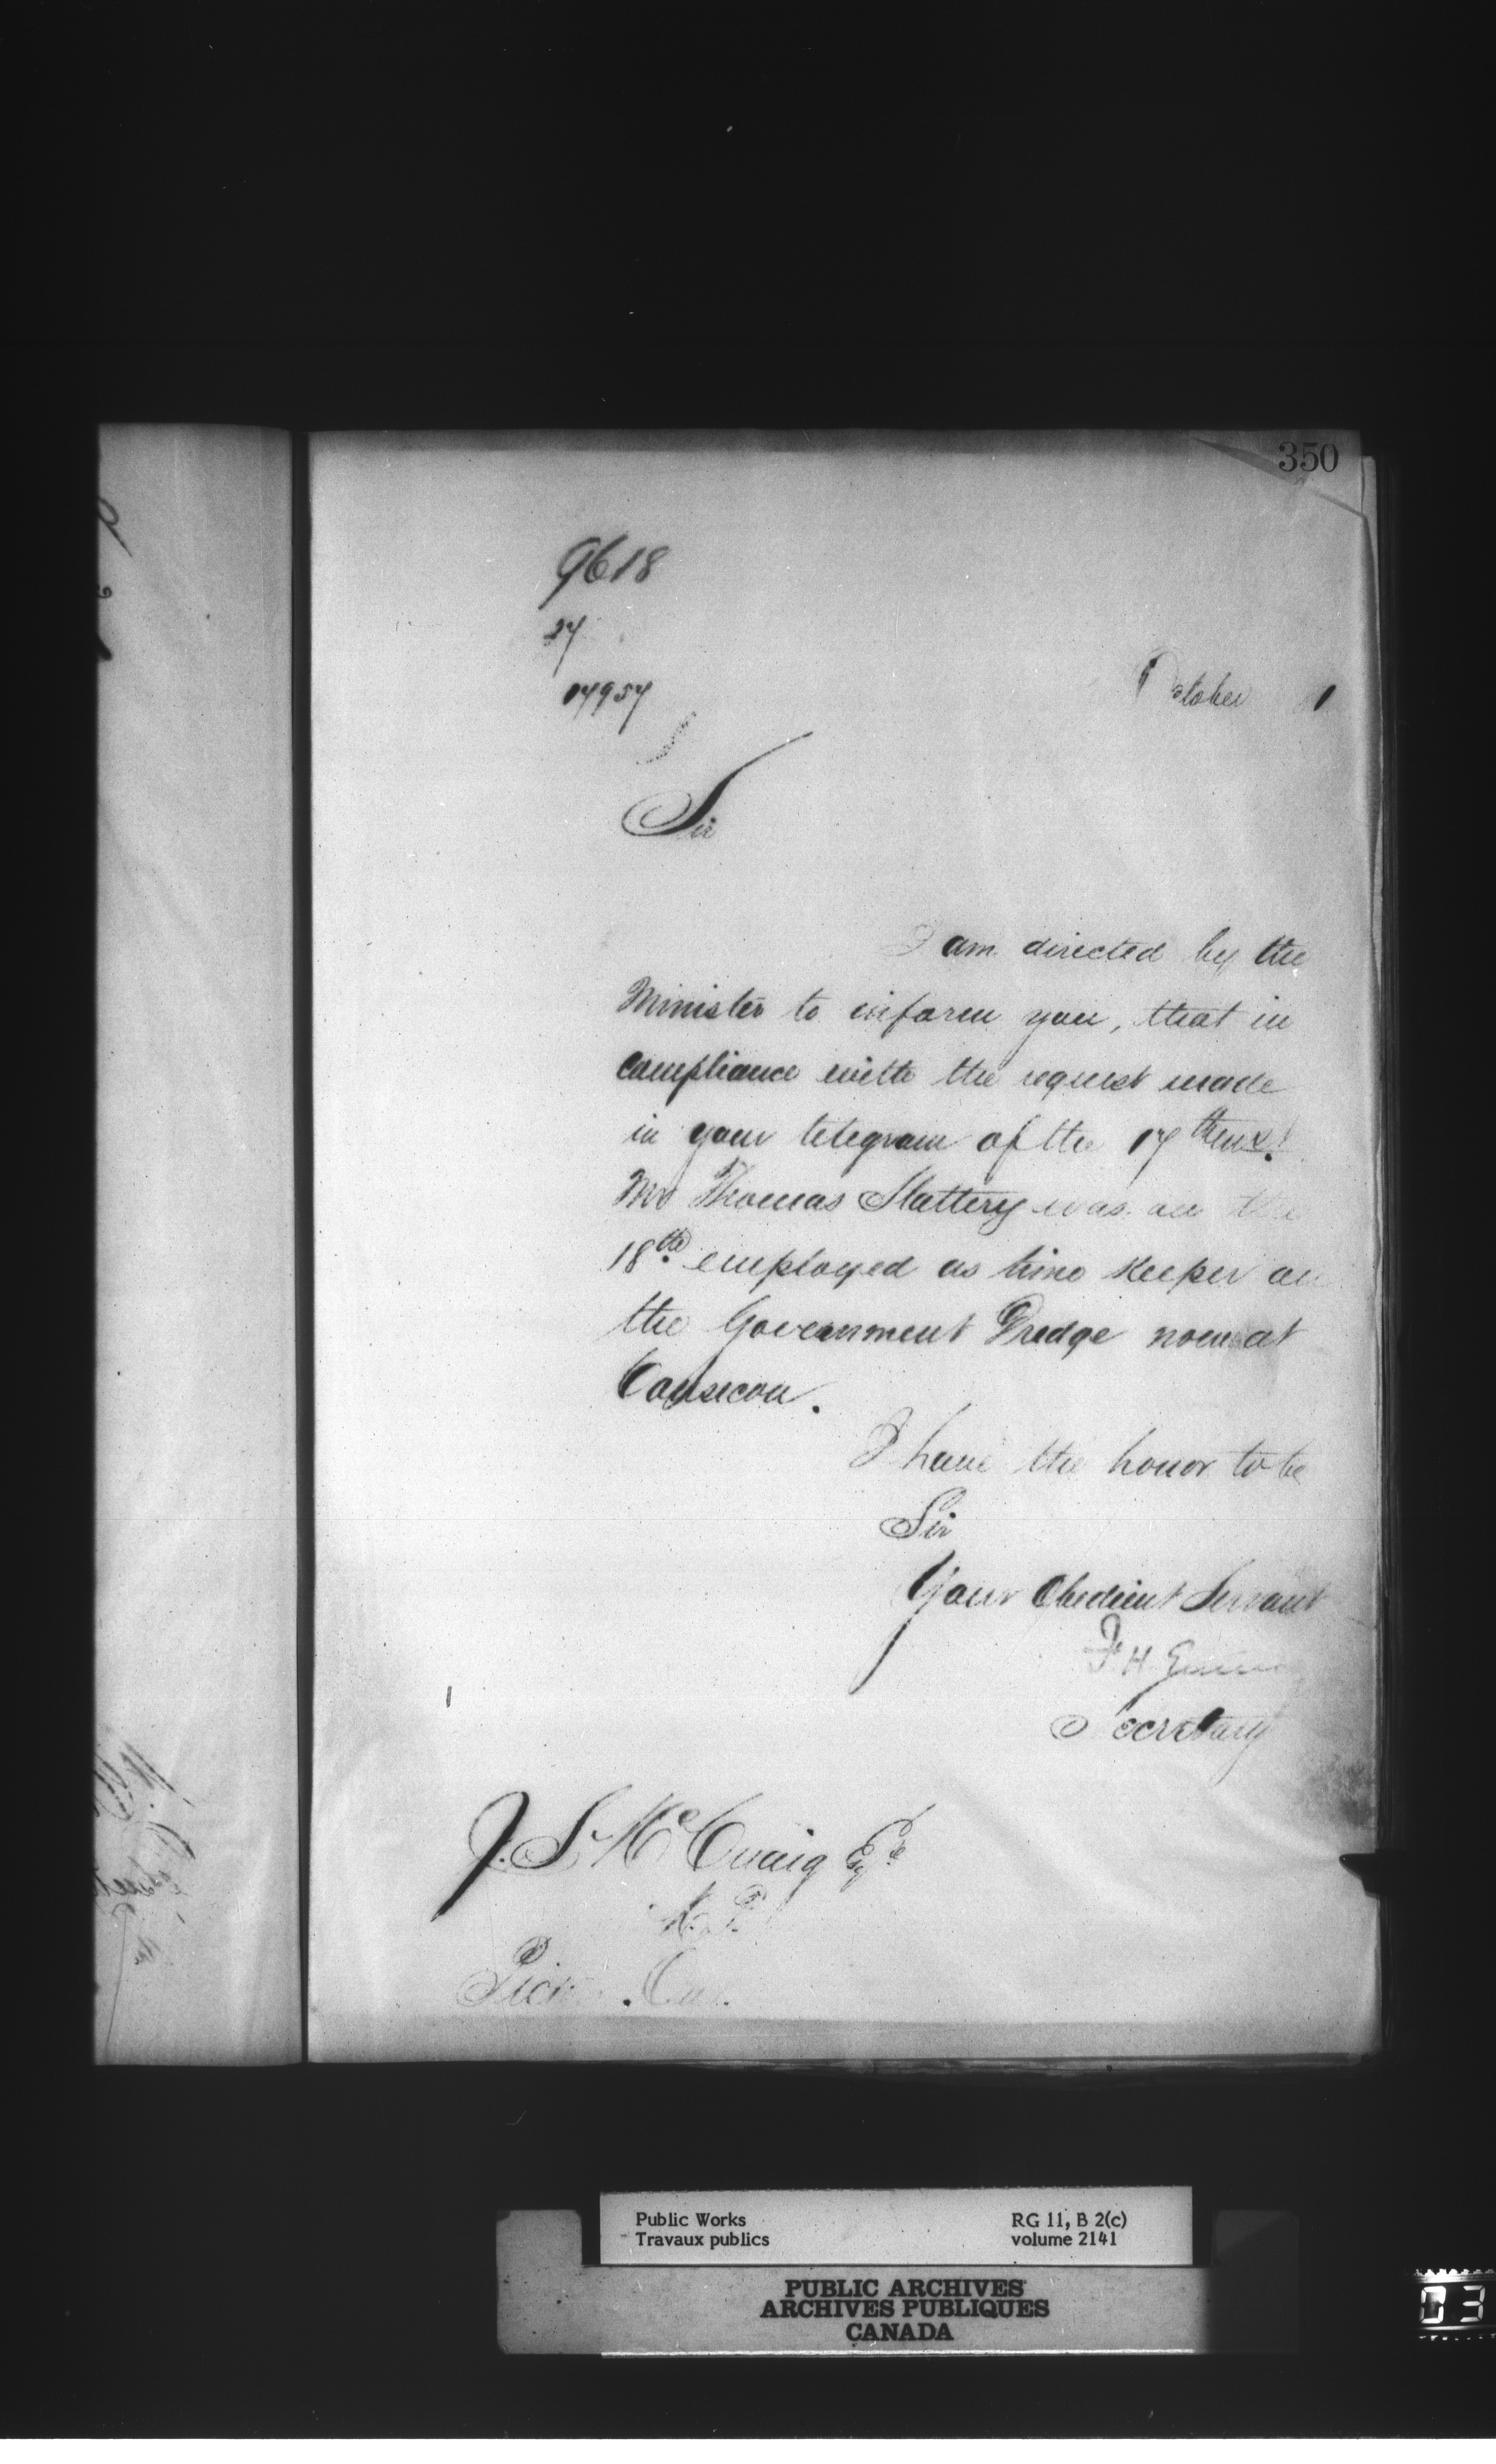 350
9618
27
17957
October 1
Sir
I am directed by the
Minister to inform you, that in
compliance with the request made
in your telegram of the 17th inst.
Mr Thomas Slattery was on the
18th employed as time keeper on
the Government Dredge now at
Consecon.
I have the honor to be
Sir
Your Obedient Servant
F H
Secretary
J. S. McCuaig Esqre
M.P.
Public Works
Travaux publics
RG 11, B 2(c)
volume 2141
PUBLIC ARCHIVES
ARCHIVES PUBLIQUES
CANADA
03